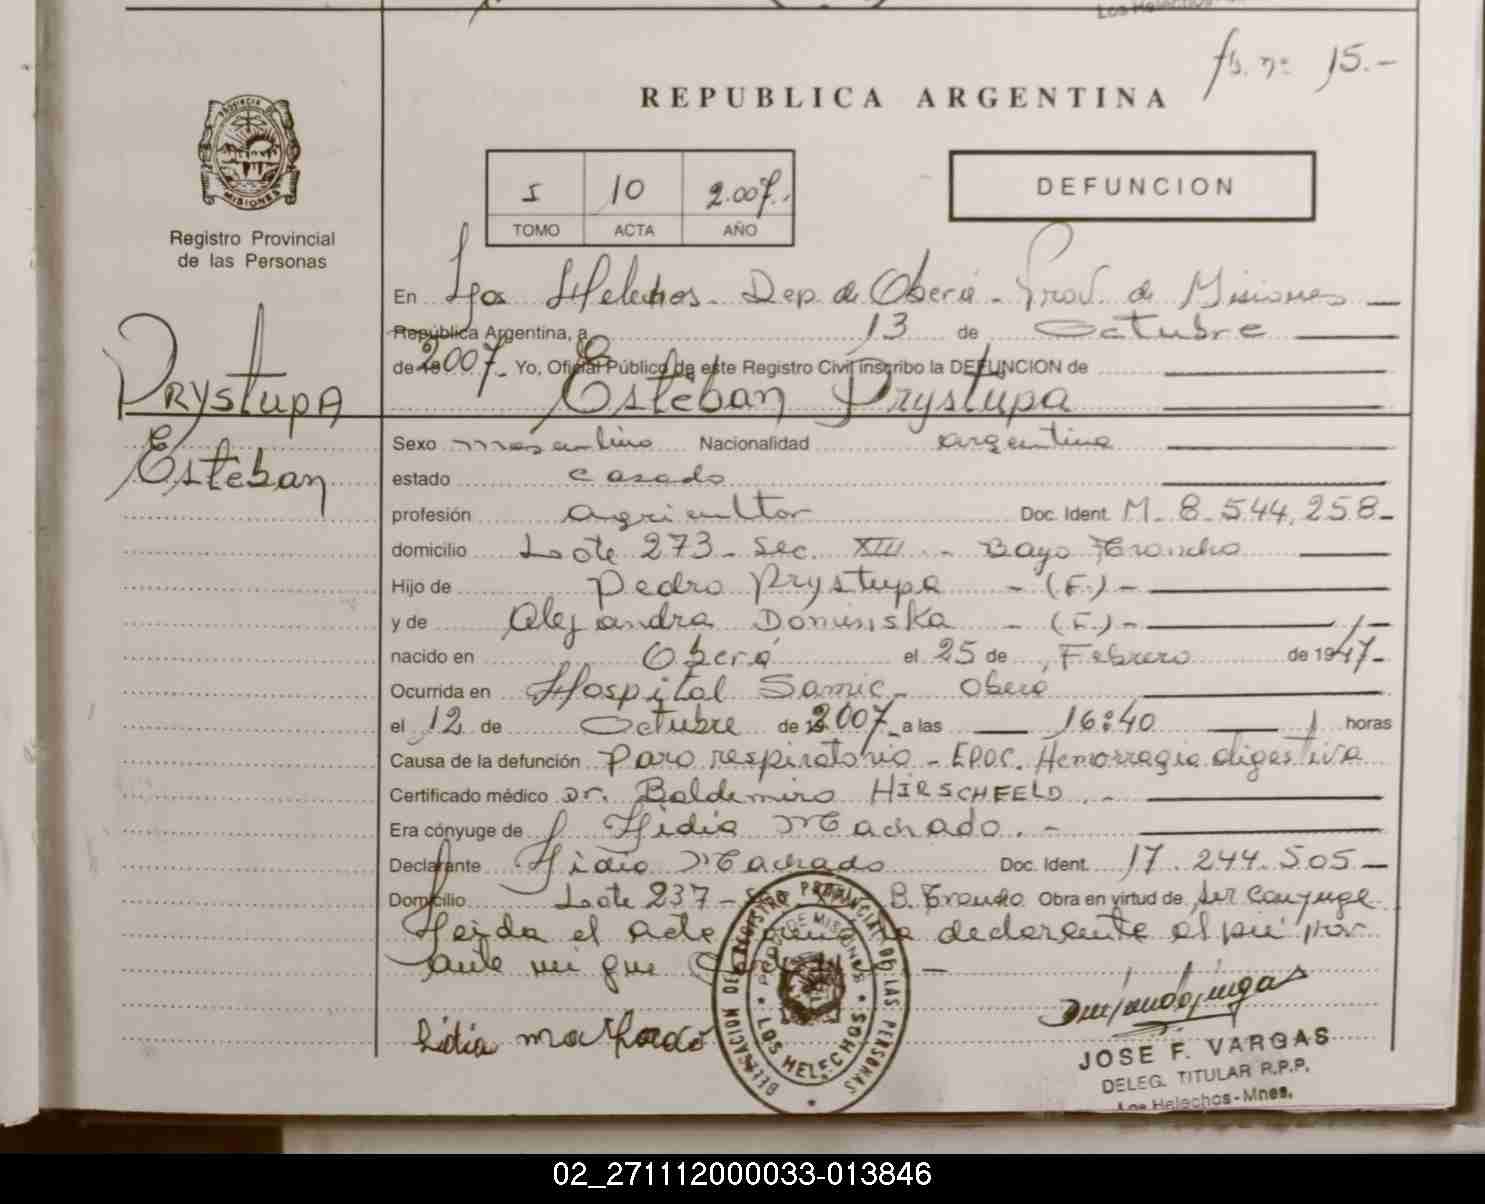 Los Helechos
fs. nº 15.-
REPUBLICA ARGENTINA
PROVINCIA DE
MISIONES
Registro Provincial
de las Personas
I 10 2.007.-
TOMO ACTA AÑO
DEFUNCION
En Los Helechos - Dep. de Oberá - Prov. de Misiones
República Argentina, a 13 de Octubre
de 2007 Yo, Oficial Público de este Registro Civil inscribo la DEFUNCION de
Esteban Prystupa
Prystupa
Esteban
Sexo masculino Nacionalidad argentina
estado casado
profesión agricultor Doc. Ident. M. 8.544.258-
domicilio Lote 273 - Sec. XIII - Bayo Troncho
Hijo de Pedro Prystupa - (F.) -
y de Alejandra Dominska - (F.) -
nacido en Oberá el 25 de Febrero de 1947-
Ocurrida en Hospital Samic - Oberá
el 12 de Octubre de 2007 a las 16:40 horas
Causa de la defunción Paro respiratorio - EPOC. Hemorragia digestiva
Certificado médico Dr. Baldemiro HIRSCHFELD . -
Era cónyuge de Lidia Machado. -
Declarante Lidia Machado Doc. Ident. 17.244.505-
Domicilio Lote 237 - B. Troncho Obra en virtud de ser conyuge
Leida el acta la declarante al pie por
ante mi que
Lidia Machado
DELEGACION DEL REGISTRO PROVINCIAL DE LAS PERSONAS
PROV. DE MISIONES
LOS HELECHOS
JOSE F. VARGAS
DELEG. TITULAR R.P.P.
Los Helechos - Mnes.
02_271112000033-013846